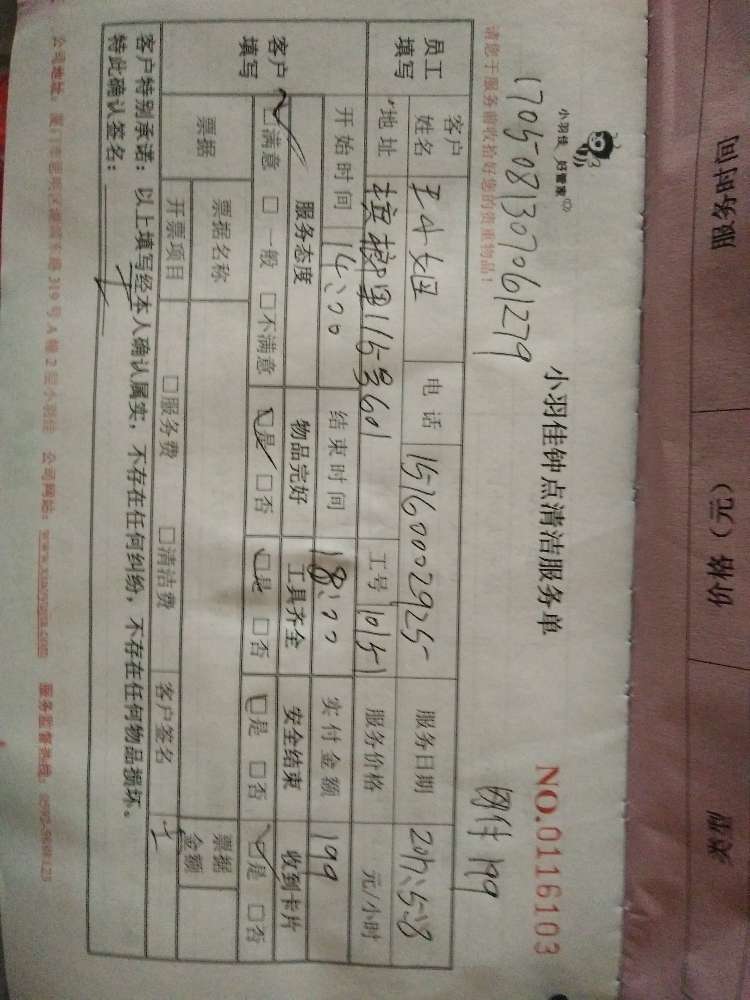 服务时间 价格（元） 类型
小羽佳 好管家
小羽佳钟点清洁服务单
NO.0116103
1705081307061279
网付 199
请您于服务前收拾好您的贵重物品！
员工填写
客户姓名 王小姐 电话 15160002925 服务日期 2017.5.8
地址 115号601 工号 10151 服务价格 元/小时
开始时间 14:00 结束时间 18:00 实付金额 199
客户填写
服务态度 物品完好 工具齐全 安全结束 收到卡片
□满意 □一般 □不满意 □是 □否 □是 □否 □是 □否 □是 □否
票据 票据名称 票据金额
开票项目 □服务费 □清洁费 客户签名 王
客户特别承诺：以上填写经本人确认属实，不存在任何纠纷，不存在任何物品损坏。
特此确认签名：
公司地址： 319号A幢2层小羽佳 公司网站：www.xiaoyujia.com 服务监督热线：